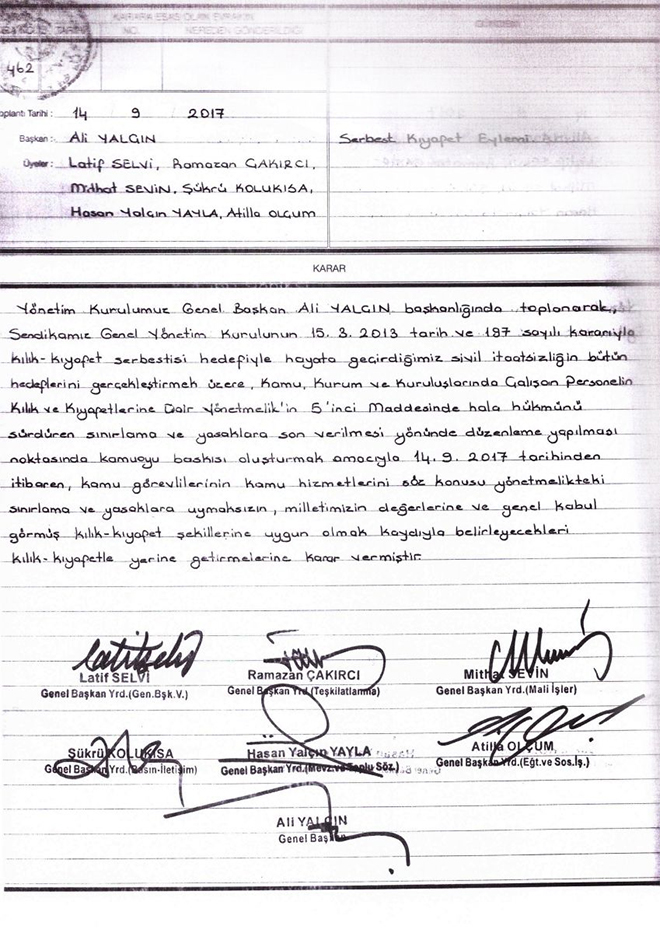 KARARA ESAS OLAN EVRAKIN
TARİHİ NO. NEREDEN GÖNDERİLDİĞİ
462
oplantı Tarihi : 14 9 2017
Başkan : Ali YALÇIN
Serbest Kıyafet Eylemi
Üyeler : Latif SELVİ, Ramazan ÇAKIRCI,
Mithat SEVİN, Şükrü KOLUKISA,
Hasan Yalçın YAYLA, Atilla OLÇUM
KARAR
Yönetim Kurulumuz Genel Başkan Ali YALÇIN başkanlığında toplanarak,
Sendikamız Genel Yönetim Kurulunun 15.3.2013 tarih ve 187 sayılı kararıyla
kılık-kıyafet serbestisi hedefiyle hayata geçirdiğimiz sivil itaatsizliğin bütün
hedeflerini gerçekleştirmek üzere, Kamu, Kurum ve Kuruluşlarında Çalışan Personelin
Kılık ve Kıyafetlerine Dair Yönetmelik'in 5'inci Maddesinde hala hükmünü
sürdüren sınırlama ve yasaklara son verilmesi yönünde düzenleme yapılması
noktasında kamuoyu baskısı oluşturmak amacıyla 14.9.2017 tarihinden
itibaren, kamu görevlilerinin kamu hizmetlerini söz konusu yönetmelikteki
sınırlama ve yasaklara uymaksızın, milletimizin değerlerine ve genel kabul
görmüş kılık-kıyafet şekillerine uygun olmak kaydıyla belirleyecekleri
kılık-kıyafetle yerine getirmelerine karar vermiştir.
Latif SELVİ Ramazan ÇAKIRCI Mithat SEVİN
Genel Başkan Yrd.(Gen.Bşk.V.) Genel Başkan Yrd.(Teşkilatlanma) Genel Başkan Yrd.(Mali İşler)
Şükrü KOLUKISA Hasan Yalçın YAYLA Atilla OLÇUM
Genel Başkan Yrd.(Basın-İletişim) Genel Başkan Yrd.(Mevz.ve Toplu Söz.) Genel Başkan Yrd.(Eğt.ve Sos.İş.)
Ali YALÇIN
Genel Başkan